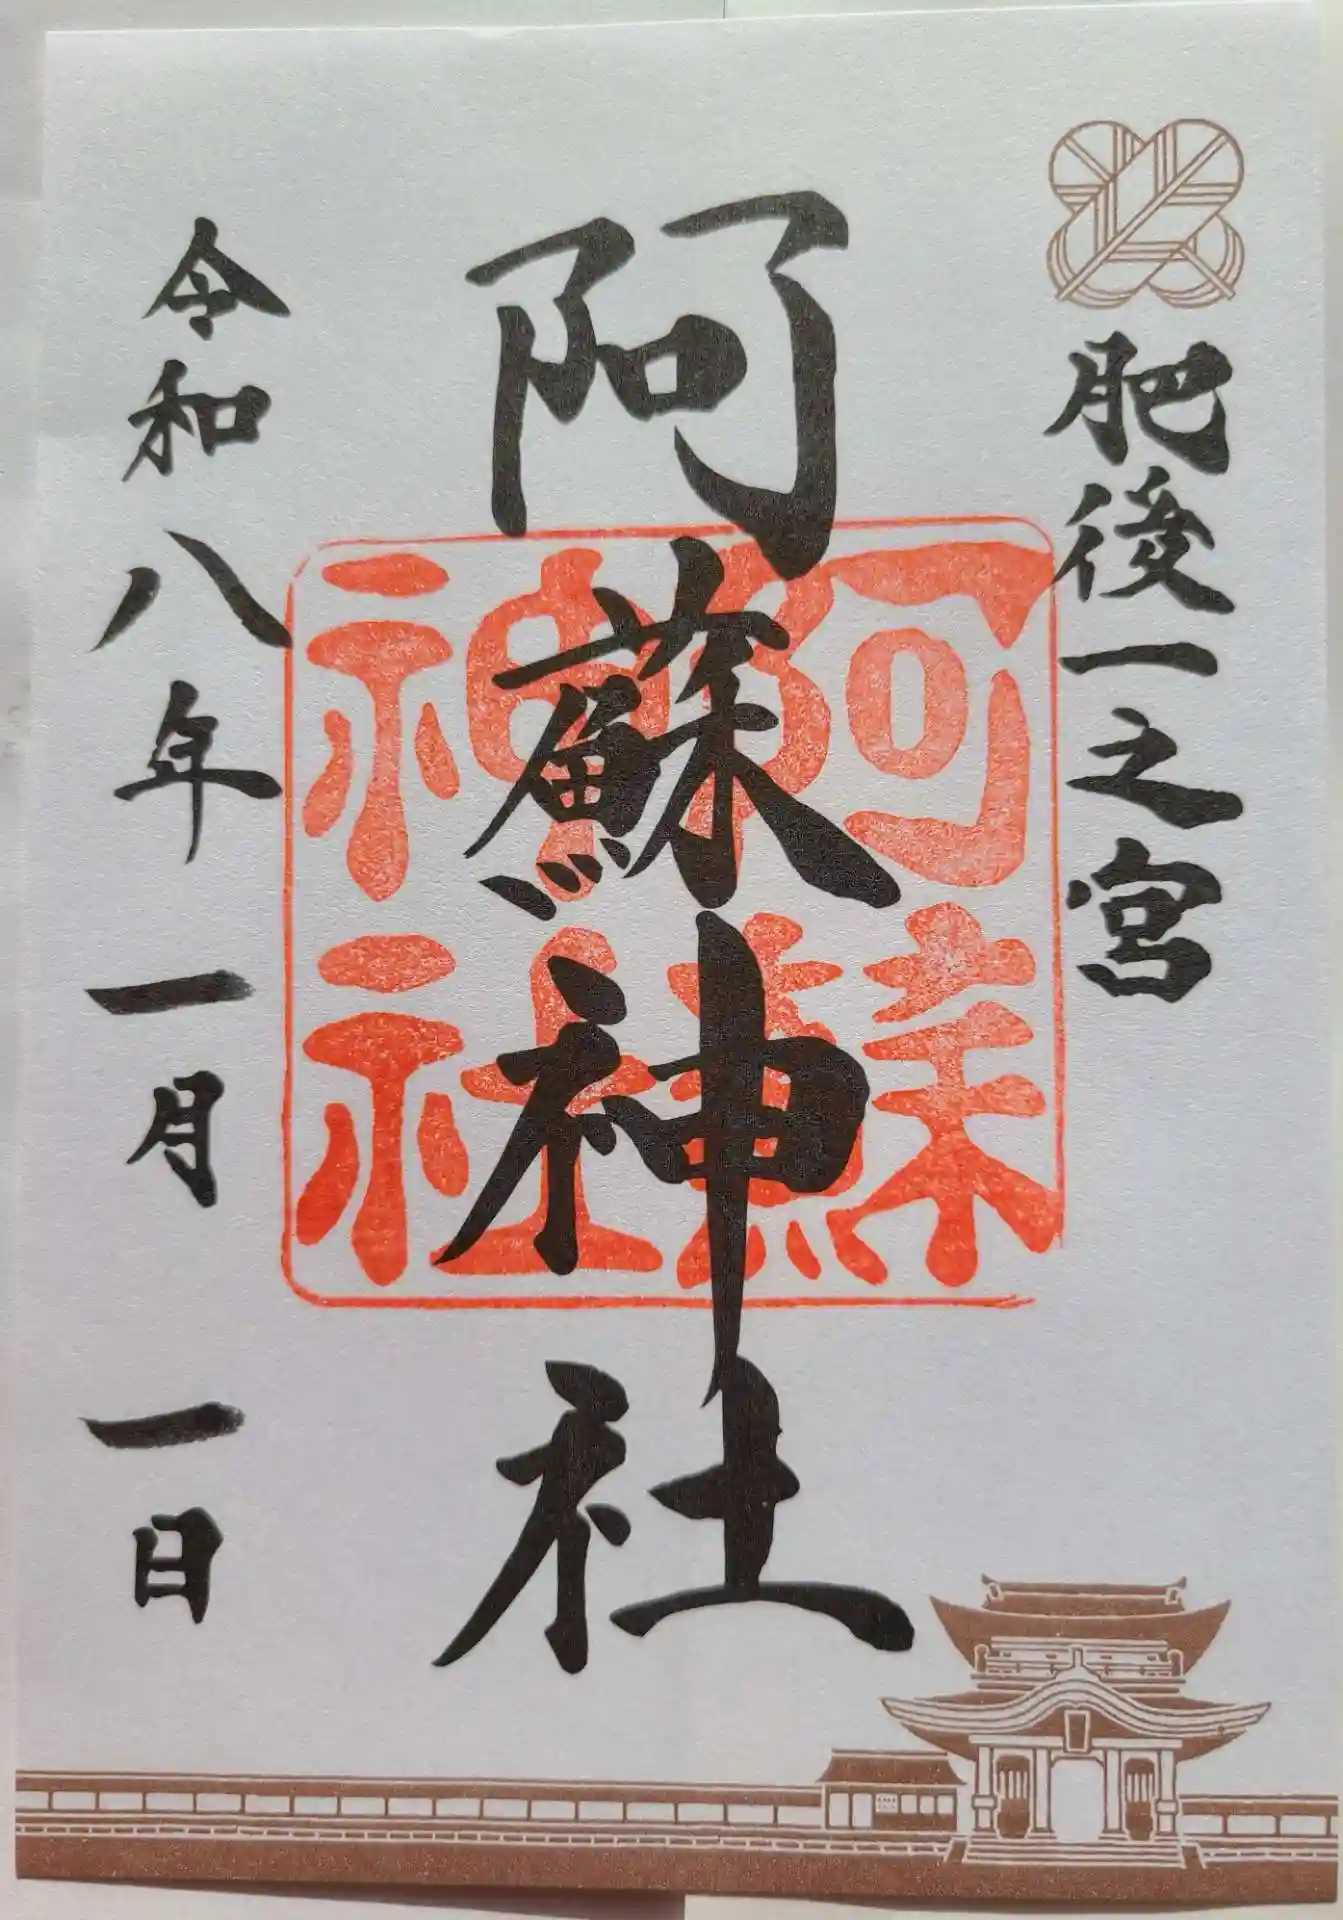 肥後一之宮
阿蘇神社
阿蘇
神社
令和八年一月一日